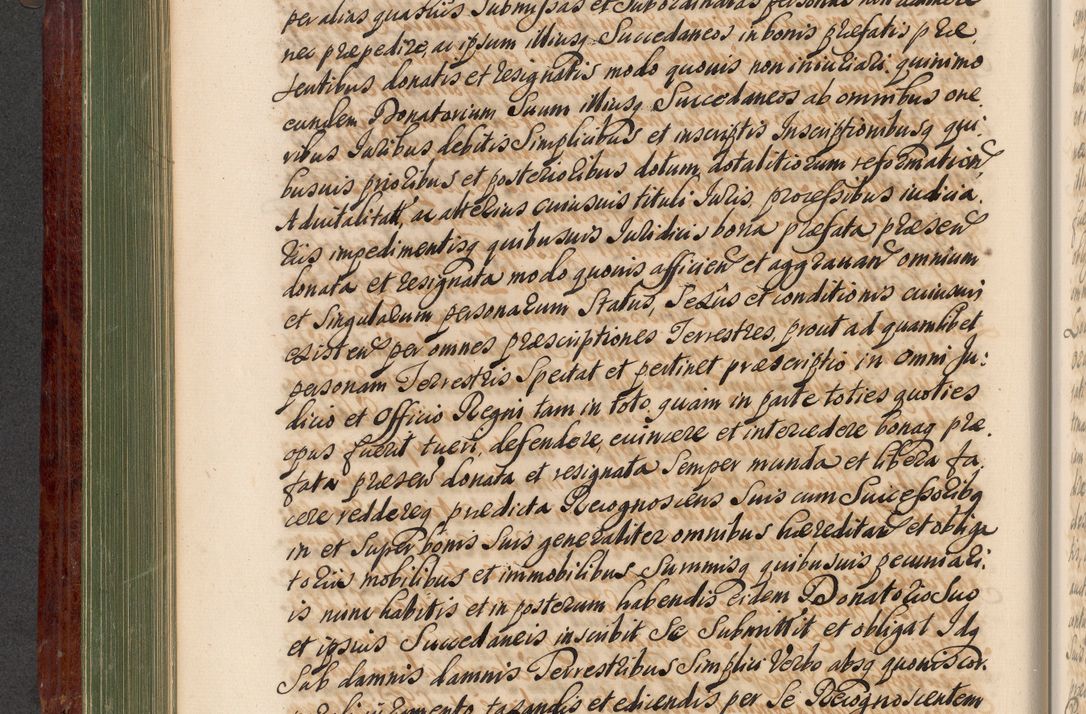 per alias quasuis Submissas et Subordinatas personas non
nec præpedire, ac ipsum illiusq Succedaneos in bonis præfatis præ
sentibus donatis et resignatis modo quouis non iniuriari, quinimo
eundem Donatorium Suum illiusq Succedaneos ab omnibus one
ribus Juribus debitis Simplicibus et inscriptis Inscriptionibusq qui:
busuis prioribus et posterioribus dotum, dotalitiorum reformation
Aduitalitat, ac alterius cuiusuis tituli Juris, processibus iudicia
riis impedimentisq quibusuis Juridicis bona præfata præsen
donata et resignata modo quouis afficien et aggrauan omnium
et Singularum personarum Status, Sexûs et conditionis cuiusuis
existen per omnes præscriptiones Terrestres, prout ad quamlibet
personam Terrestris Spectat et pertinet præscriptio in omni Ju:
dicio et Officio Regni tam in toto quam in parte toties quoties
opus fuerit tueri, defendere, euincere et intercedere bonaq præ
fata præsen donata et resignata Semper munda et libera fa
cere reddereq prædicta Recognoscens Suis cum Successoribq
in et Super bonis Suis generaliter omnibus hæreditar et obliga
toriis mobilibus et immobilibus Summisq quibusuis pecuniari:
is nunc habitis et in posterum habendis eidem Donatorio Suo
et ipsius Succedaneis inscribit Se Submittit et obligat Idq
Sub damnis damnis Terrestribus Simplici Verbo absq quouis cor
iuramento taxandis et edicendis per Se Recognoscentem